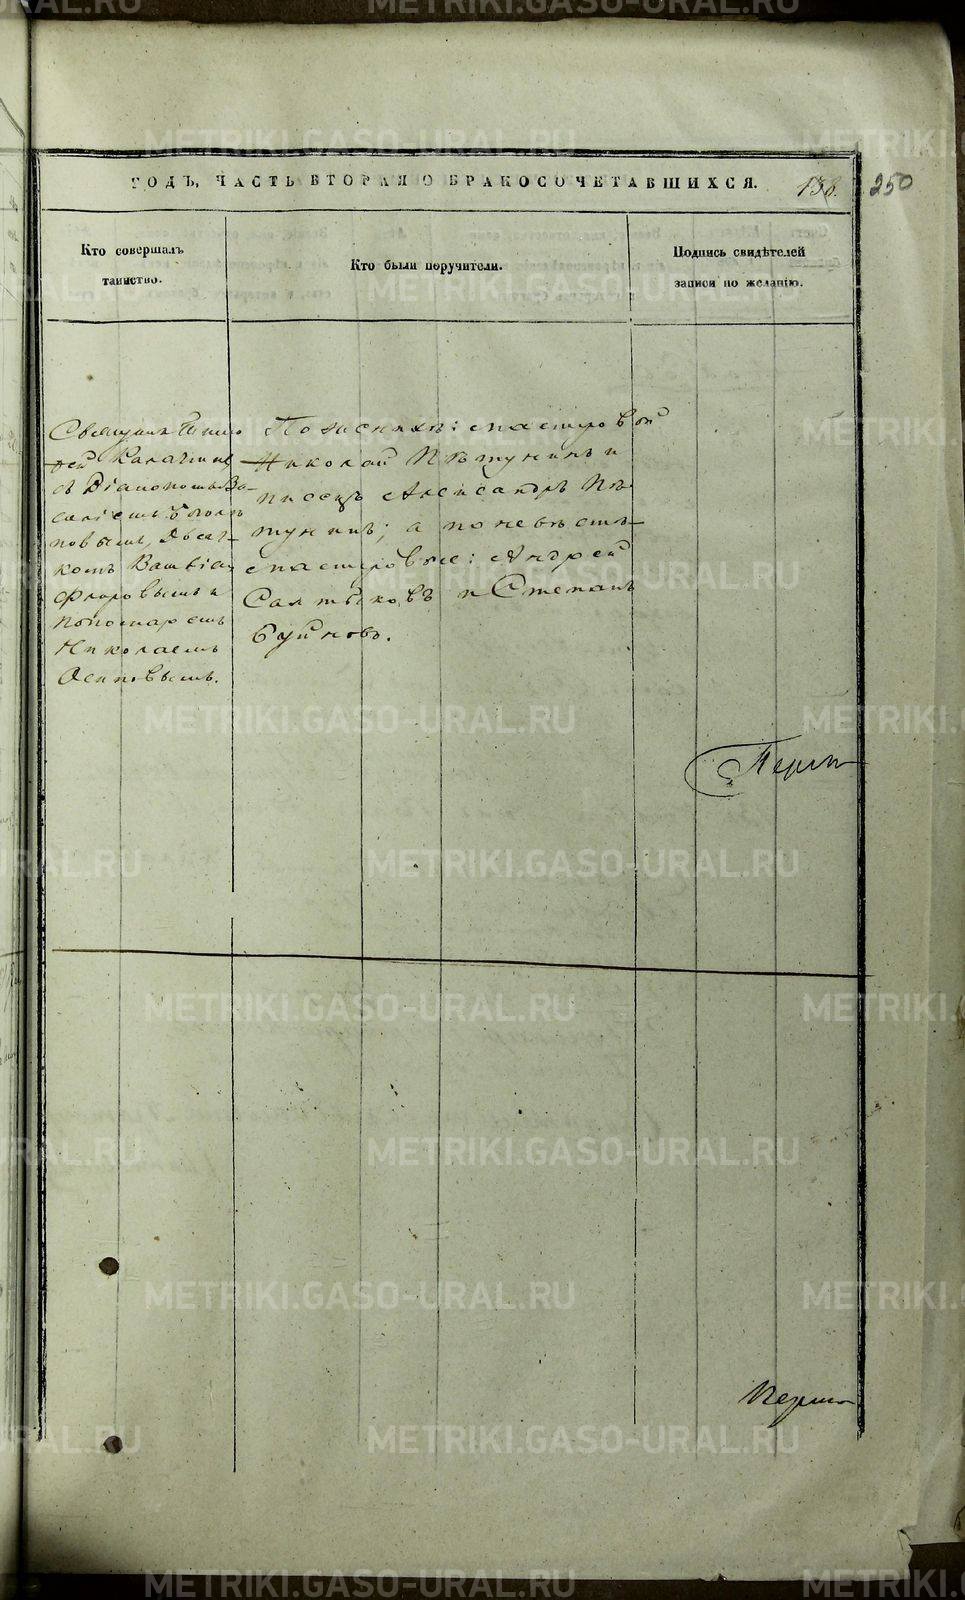 ГОДЪ, ЧАСТЬ ВТОРАЯ О БРАКОСОЧЕТАВШИХСЯ.
138.
250
Кто совершалъ
таинство.
Кто были поручители.
Подпись свидѣтелей
записи по желанію.
Священникъ Тимо
фей Калачниковъ
съ Діакономъ Ва-
силіемъ
повымъ, Дьяч-
комъ
Флоровымъ и
пономаремъ
Николаемъ
Осиповымъ.
По женихѣ: мастеровой
Николай Пѣтунинъ и
писецъ Александръ Пѣ
тунинъ; а по невѣстѣ
мастеровые: Андрей
Салтыковъ и Степанъ
Буйновъ.
METRIKI.GASO-URAL.RU